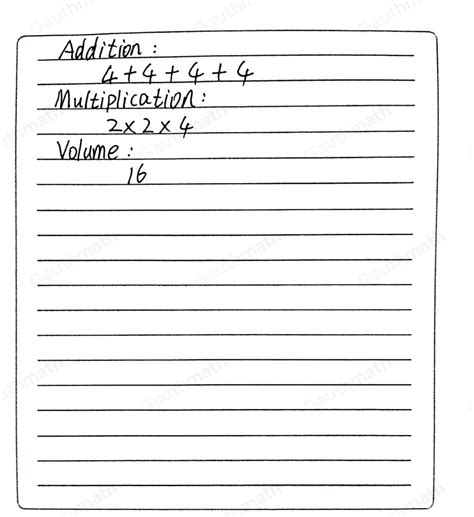 Addition :
4 + 4 + 4 + 4
Multiplication :
2 x 2 x 4
Volume :
16